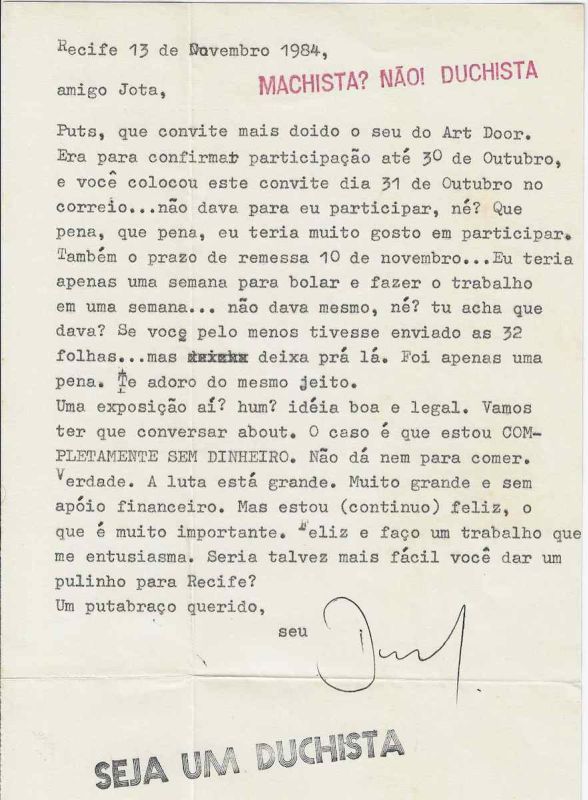 Recife 13 de Novembro 1984,
MACHISTA? NÃO! DUCHISTA
amigo Jota,
Puts, que convite mais doido o seu do Art Door.
Era para confirmar participação até 30 de Outubro,
e você colocou este convite dia 31 de Outubro no
correio...não dava para eu participar, né? Que
pena, que pena, eu teria muito gosto em participar.
Também o prazo de remessa 10 de novembro...Eu teria
apenas uma semana para bolar e fazer o trabalho
em uma semana... não dava mesmo, né? tu acha que
dava? Se voce pelo menos tivesse enviado as 32
folhas...mas deixa prá lá. Foi apenas uma
pena. Te adoro do mesmo jeito.
Uma exposição aí? hum? idéia boa e legal. Vamos
ter que conversar about. O caso é que estou COM-
PLETAMENTE SEM DINHEIRO. Não dá nem para comer.
Verdade. A luta está grande. Muito grande e sem
apóio financeiro. Mas estou (continuo) feliz, o
que é muito importante. Feliz e faço um trabalho que
me entusiasma. Seria talvez mais fácil você dar um
pulinho para Recife?
Um putabraço querido,
seu
SEJA UM DUCHISTA